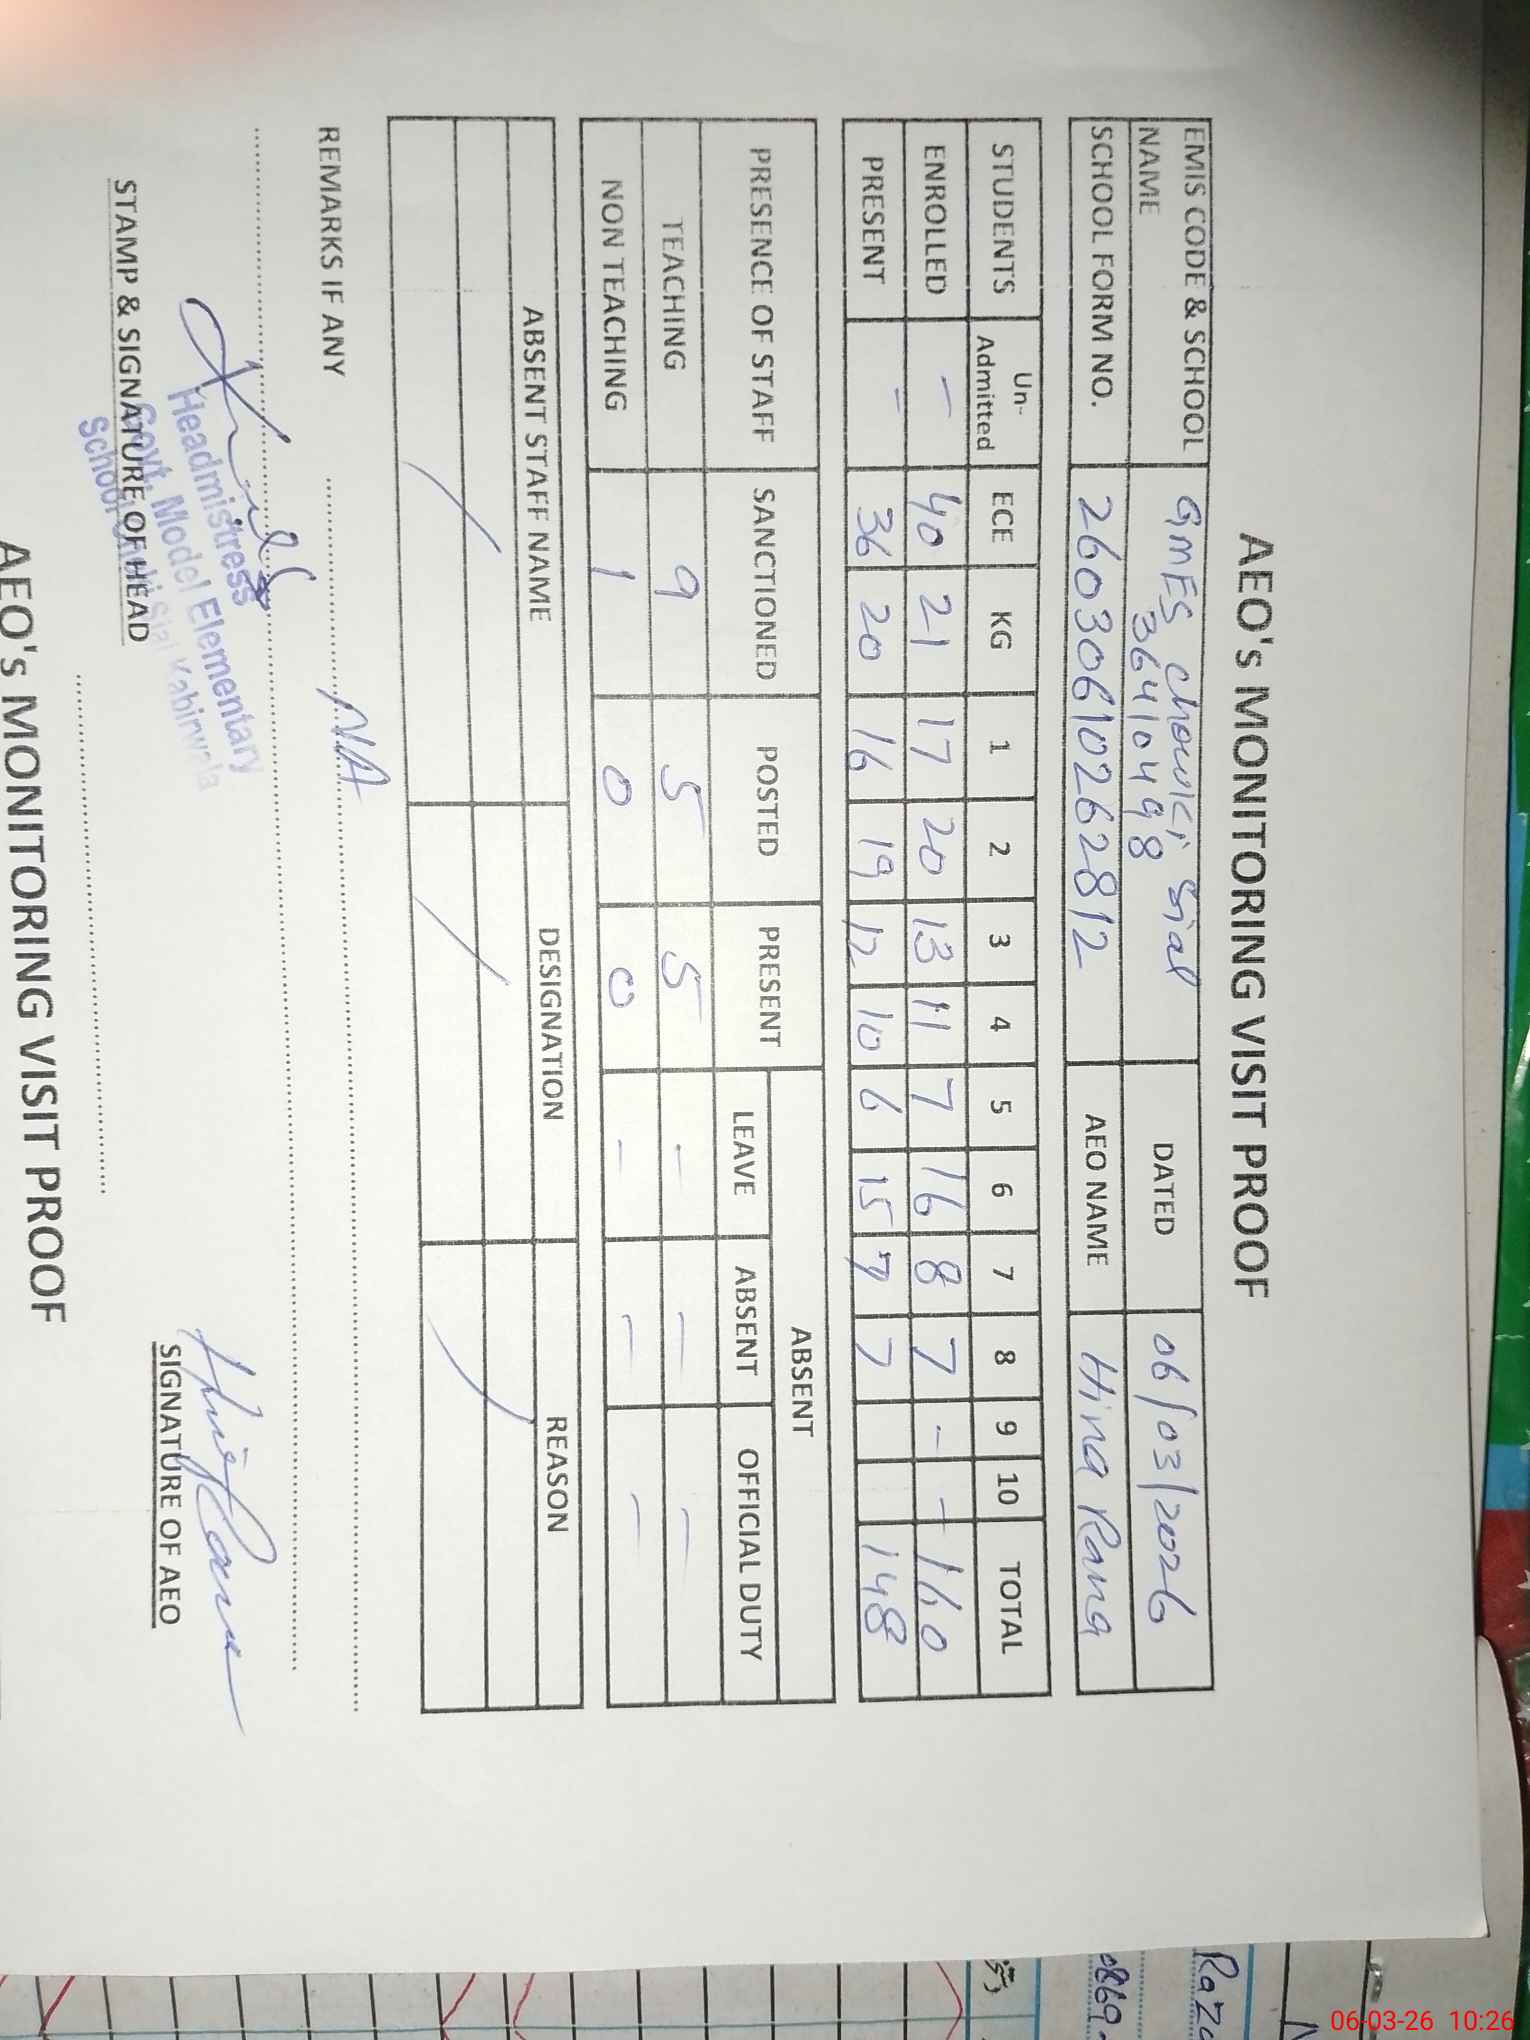 AEO's MONITORING VISIT PROOF
EMIS CODE & SCHOOL NAME GMES chowki sial 36410498 DATED 06/03/2026
SCHOOL FORM NO. 2603061026 2812 AEO NAME Hina Rana
STUDENTS Un-Admitted ECE KG 1 2 3 4 5 6 7 8 9 10 TOTAL
ENROLLED - 40 21 17 20 13 11 7 16 8 7 - - 160
PRESENT - 36 20 16 19 12 10 6 15 7 7 148
PRESENCE OF STAFF SANCTIONED POSTED PRESENT ABSENT
LEAVE ABSENT OFFICIAL DUTY
TEACHING 9 5 5 - - -
NON TEACHING 1 0 0 - - -
ABSENT STAFF NAME DESIGNATION REASON
REMARKS IF ANY NA
Headmistress
Govt. Model Elementary
School Sial Kabirwala
STAMP & SIGNATURE OF HEAD
Hina Rana
SIGNATURE OF AEO
AEO's MONITORING VISIT PROOF
0869
06-03-26 10:26